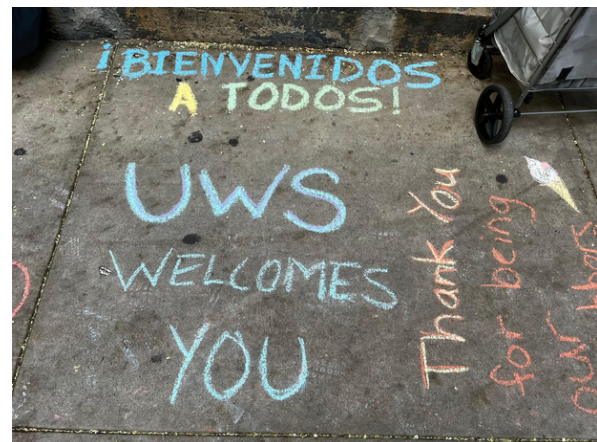 ¡BIENVENIDOS
A TODOS!
UWS
WELCOMES
YOU
Thank You
for being
our